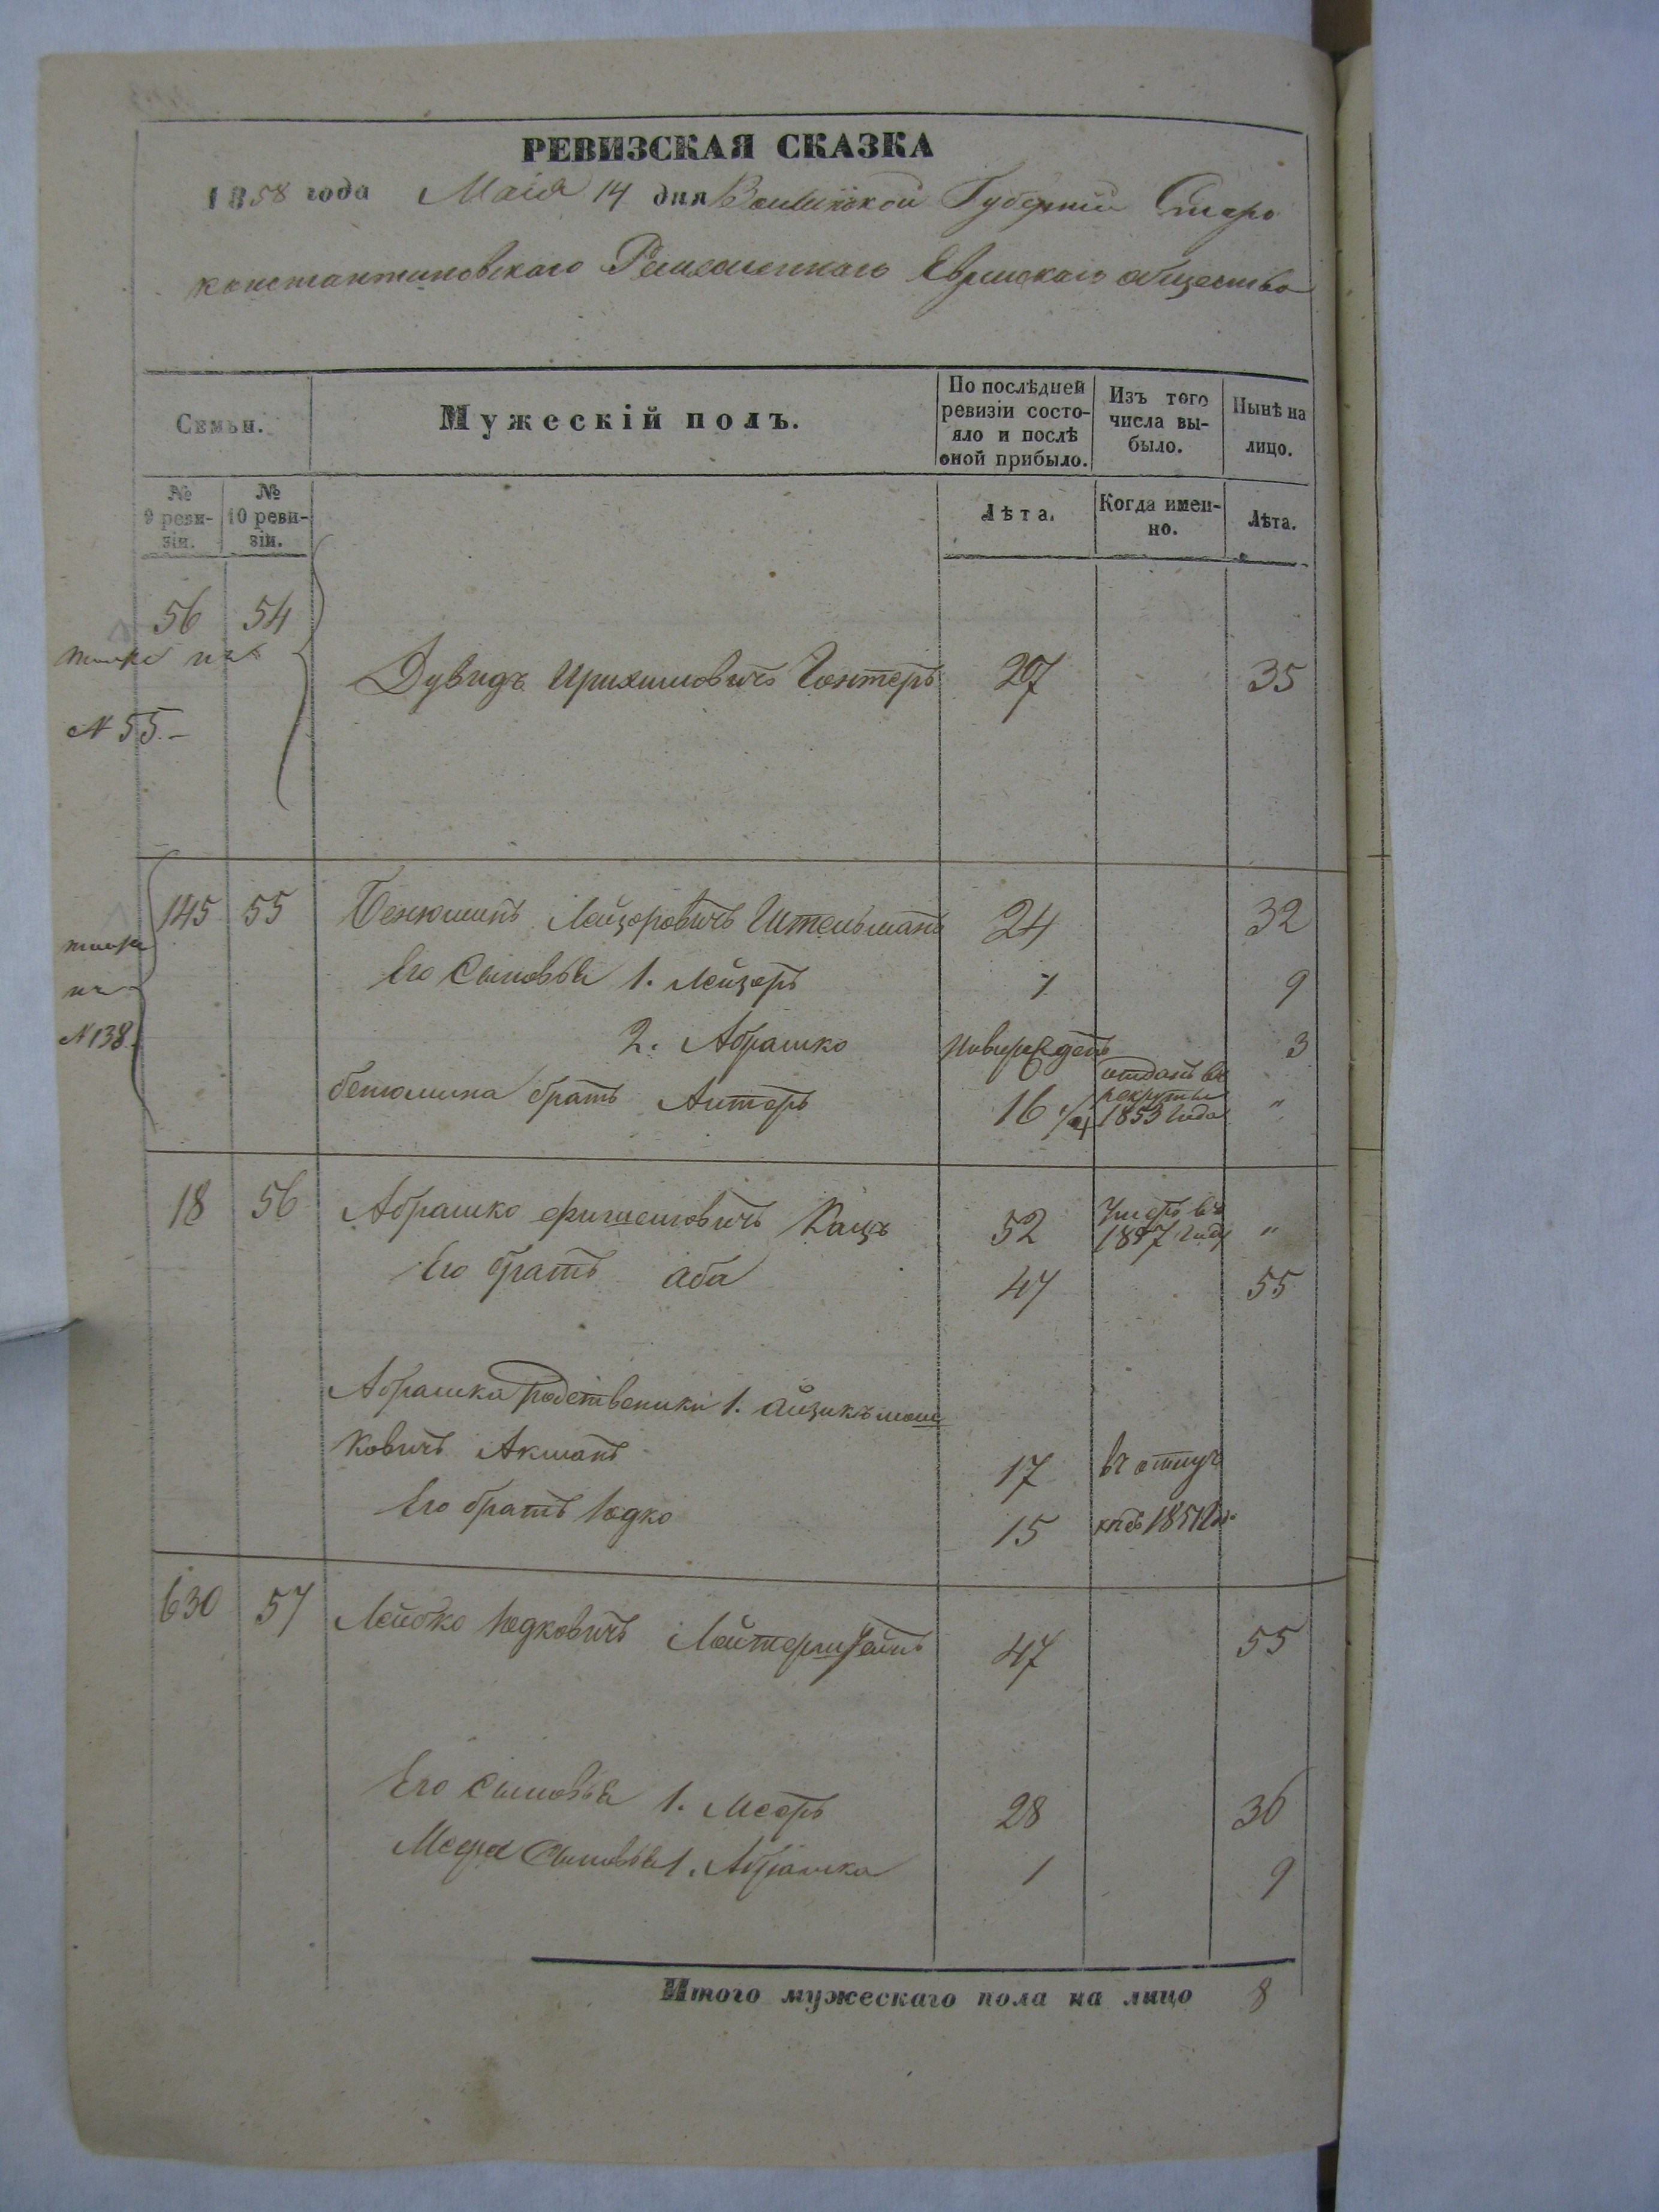 РЕВИЗСКАЯ СКАЗКА
1858 года Маія 14 дня Волынской Губерніи Старо
константиновскаго Ремесленнаго Еврейскаго общества
Семьи.
Мужескій полъ.
По послѣдней ревизіи состояло и послѣ оной прибыло.
Изъ того числа выбыло.
Нынѣ на лицо.
№ 9 ревизіи.
№ 10 ревизіи.
Лѣта.
Когда именно.
Лѣта.
56 54
N 55.-
Дувидъ Ирихимовичъ Гонтеръ 27 35
145 55 Бенюминъ Лейзоровичъ Штельманъ 24 32
N 138.
Его Сыновья 1. Лейзоръ 1 9
2. Абрашко новорожденъ 3
бенюмина братъ Антеръ 16 1/4 отданъ въ рекруты 1853 года "
18 56 Абрашко Фишелевичъ Кацъ 52 Умеръ въ 1857 году "
Его братъ Аба 47 55
Абрашки родственики 1. Айзикъ мош
ковичъ Акманъ 17 въ
Его братъ Юдко 15 1851
630 57 Лейбко Юдковичъ 47 55
Его Сыновья 1. Мееръ 28 36
Меера Сыновья 1. Абрашка 1 9
Итого мужескаго пола на лицо 8